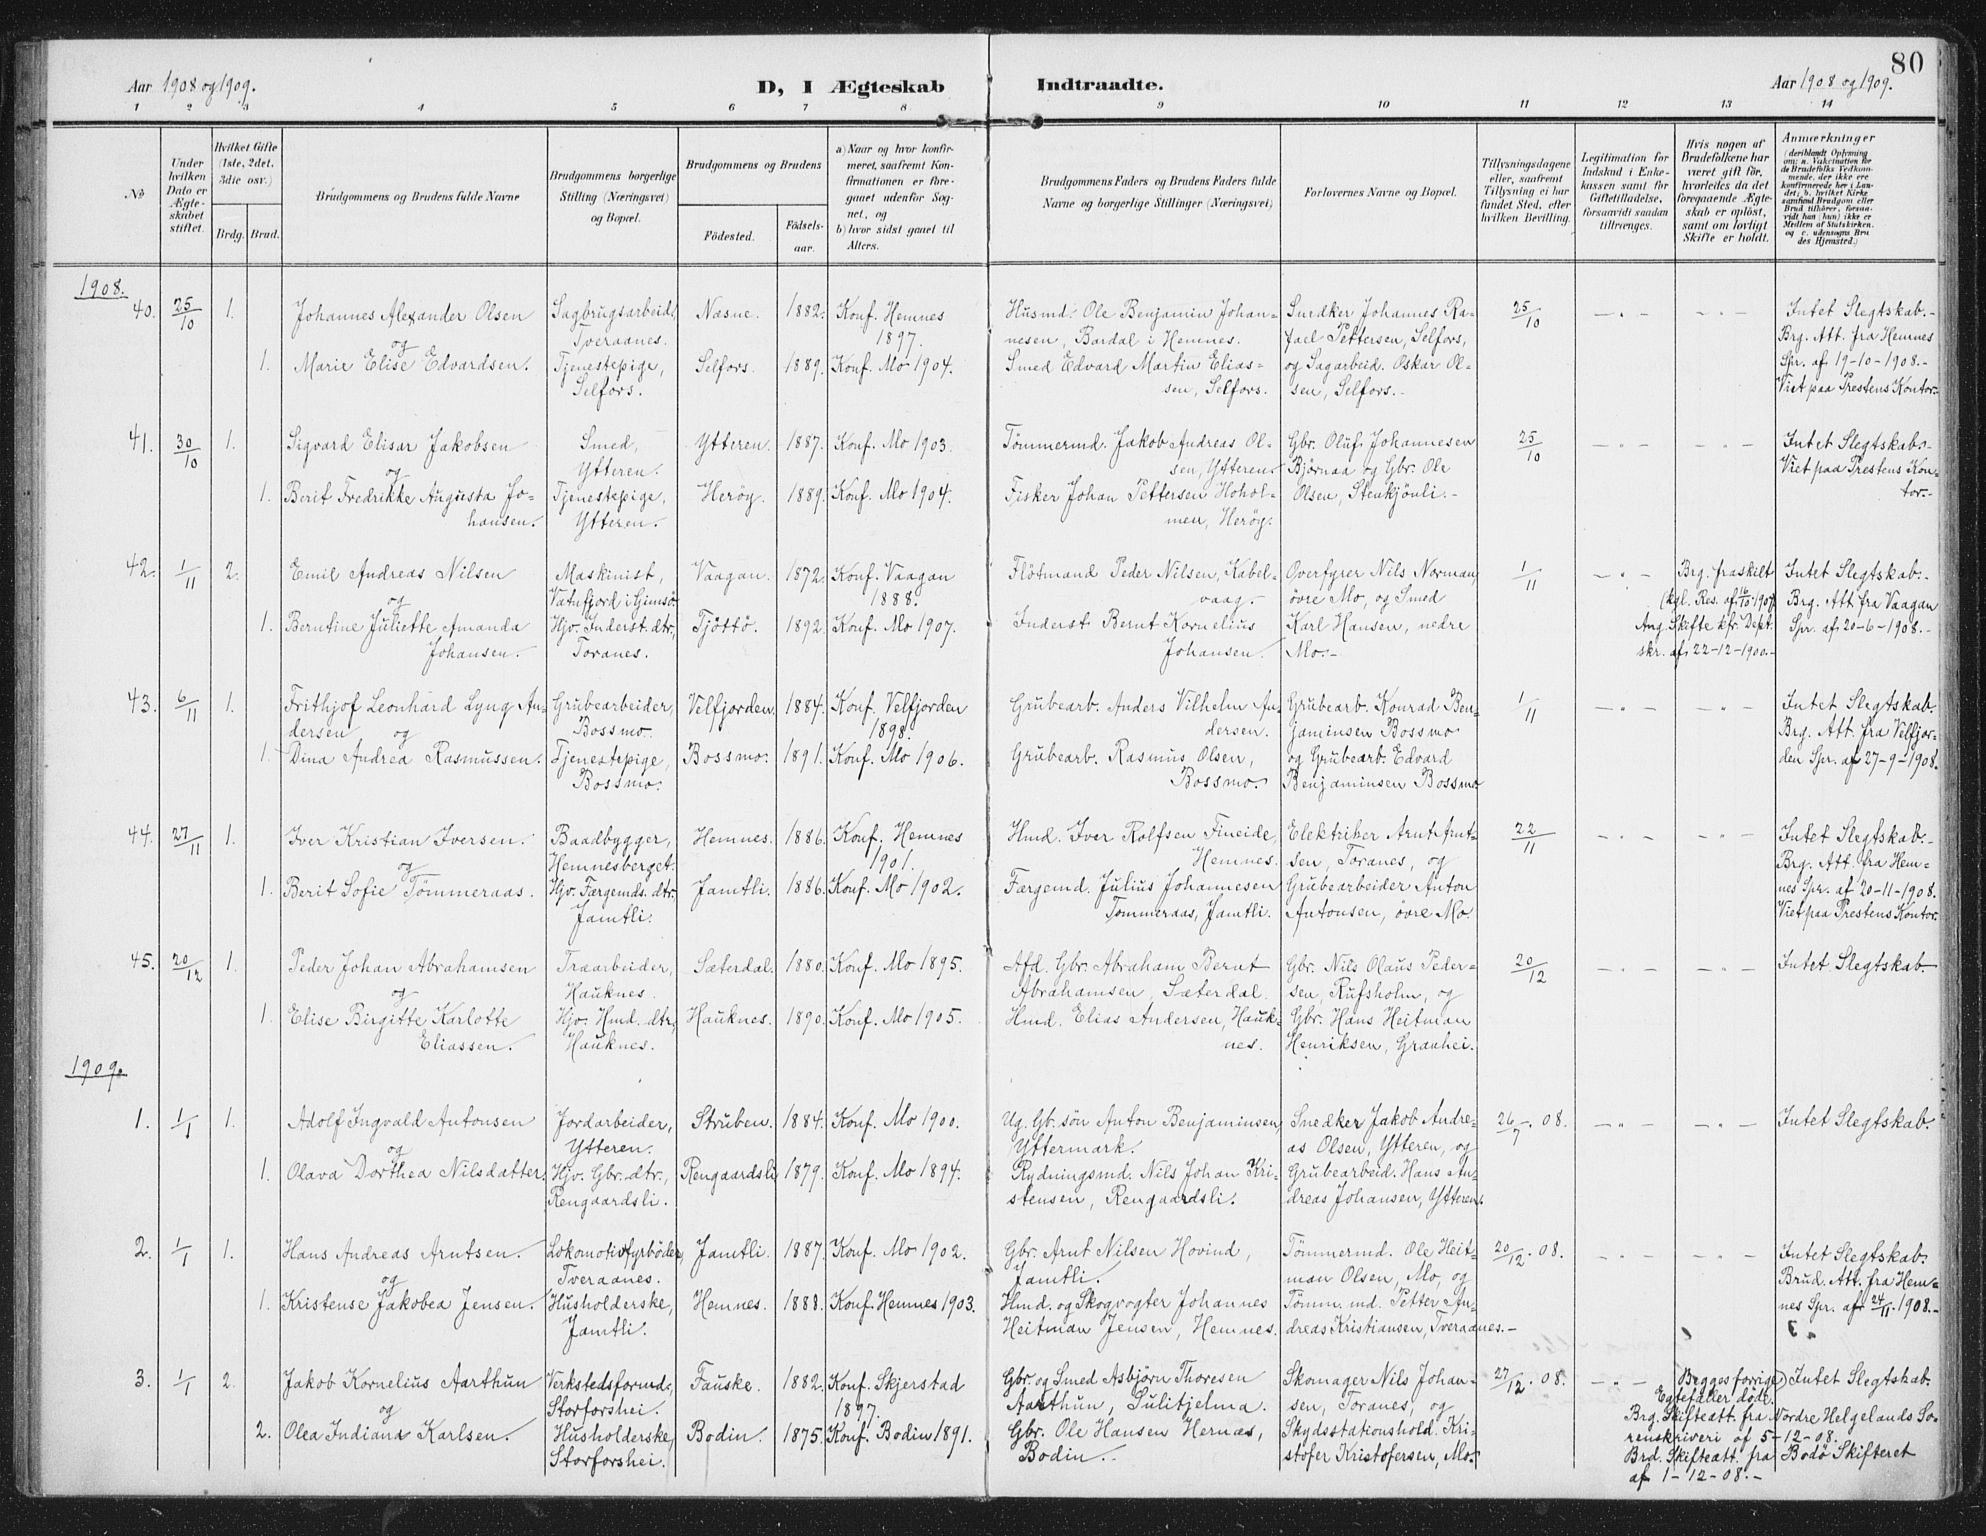 80
Aar 1908 og 1909.
D, I Ægteskab Indtraadte.
Aar 1908 og 1909.
1 2 3 4 5 6 7 8 9 10 11 12 13 14
No
Under hvilken Dato er Ægteskabet stiftet.
Hvilket Gifte (1ste, 2det, 3die osv.)
Brdg. Brud.
Brudgommens og Brudens fulde Navne
Brudgommens borgerlige Stilling (Næringsvei) og Bopæl.
Brudgommens og Brudens
Fødested.
Fødselsaar.
a) Naar og hvor konfirmeret, saafremt Konfirmationen er foregaaet udenfor Sognet, og
b) hvor sidst gaaet til Alters.
Brudgommens Faders og Brudens Faders fulde Navne og borgerlige Stillinger (Næringsvei)
Forlovernes Navne og Bopæl.
Tillysningsdagene eller, saafremt Tillysning ei har fundet Sted, efter hvilken Bevilling.
Legitimation for Indskud i Enkekassen samt for Giftetilladelse, forsaavidt saadan tiltrænges.
Hvis nogen af Brudefolkene har været gift før, hvorledes da det foregaaende Ægteskab er opløst, samt om lovligt Skifte er holdt.
Anmærkninger
(deriblandt Oplysning om: a. Vakcination for de Brudefolks Vedkommende, der ikke ere konfirmerede her i Landet; b. hvilket Kirkesamfund Brudgom eller Brud tilhører, forsaavidt han (hun) ikke er Medlem af Statskirken, og c. udensogns Brudes Hjemsted.)
1908.
40. 25/10 1. Johannes Alexander Olsen
og
1. Marie Elise Edvardsen.
Sagbrugsarbeid.
Tveraanes.
Tjenestepige,
Selfors.
Næsne. 1882. Konf. Hemnes
1897.
Selfors. 1889. Konf. Mo 1904.
Husmd. Ole Benjamin Johan-
nesen, Bardal i Hemnes.
Smed Edvard Martin Elias-
sen, Selfors.
Snedker Johannes Ra-
fael Pettersen, Selfors,
og Sagarbeid. Oskar Ol-
sen, Selfors.-
25/10 -"- -"-
Intet Slegtskab.-
Brg. Att. fra Hemnes
Spr. af 19-10-1908.-
Viet paa Prestens Kontor.-
41. 30/10 1. Sigvard Elisar Jakobsen
og
1. Berit Fredrikke Augusta Jo-
hansen.
Smed,
Ytteren.
Tjenestepige,
Ytteren.
Ytteren. 1887. Konf. Mo 1903.
Herøy. 1889. Konf. Mo 1904.
Tømmermd. Jakob Andreas Ol-
sen, Ytteren.
Fisker Johan Pettersen Hohol-
men, Herøy.
Gbr. Oluf Johannesen
Bjørnaa og Gbr. Ole
Olsen, Stenkjønli.-
25/10 -"- -"-
Intet Slegtskab.-
Viet paa Prestens Kon-
tor.-
42. 1/11 2. Emil Andreas Nilsen
og
1. Berntine Juliette Amanda
Johansen.
Maskinist,
Vatnfjord i Gimsø.
Hjv. Inderst. dtr,
Toranes.
Vaagan. 1872. Konf. Vaagan
1888.
Tjøttø. 1892. Konf. Mo 1907.
Flötmand Peder Nilsen, Kabel-
vaag.
Inderst Bernt Kornelius
Johansen.
Overfyrer Nils Norman,
övre Mo, og Smed
Karl Hansen, nedre
Mo.-
1/11 -"-
Brg. fraskilt
(kgl. Res. af 16/10 1907)
Ang. Skifte kfr. Dept.
skr. af 22-12-1900.-
Intet Slegtskab.-
Brg. Att fra Vaagan
Spr. af 20-6-1908.-
43. 6/11 1. Frithjof Leonhard Lyng An-
dersen og
1. Dina Andrea Rasmussen.
Grubearbeider,
Bossmo.
Tjenestepige,
Bossmo.
Velfjorden. 1884. Konf. Velfjorden
1898.
Bossmo. 1891. Konf. Mo 1906.
Grubearb. Anders Vilhelm An-
dersen.
Grubearb. Rasmus Olsen,
Bossmo.
Grubearb. Konrad Ben-
jaminsen Bossmo
og Grubearb. Edvard
Benjaminsen Bossmo
1/11 -"- -"-
Intet Slegtskab.
Brg. Att. fra Velfjor-
den Spr. af 27-9-1908.
44. 27/11 1. Iver Kristian Iversen.
og
1. Berit Sofie Tömmeraas.
Baadbygger,
Hemnesberget.
Hjv. Færgemds. dtr,
Jamtli.
Hemnes. 1886. Konf. Hemnes
1901.
Jamtli. 1886. Konf. Mo 1902.
Hmd. Iver Rolfsen Fineide,
Hemnes.
Færgemd. Julius Johannesen
Tømmeraas, Jamtli.
Elektriker Arnt Arnt-
sen, Toranes, og
Grubearbeider Anton
Antonsen, övre Mo.
22/11 -"- -"-
Intet Slegtskab.-
Brg. Att. fra Hem-
nes Spr. af 20-11-1908.
Viet paa Prestens Kontor.
45. 20/12 1. Peder Johan Abrahamsen
og
1. Elise Birgitte Karlotte
Eliassen.
Træarbeider,
Hauknes.
Hjv. Hmd. dtr,
Hauknes.
Sæterdal. 1880. Konf. Mo 1895.
Hauknes. 1890. Konf. Mo 1905.
Afd. Gbr. Abraham Bernt
Abrahamsen, Sæterdal.
Hmd. Elias Andersen, Hauk-
nes.
Gbr. Nils Olaus Peder-
sen, Rufsholm, og
Gbr. Hans Heitman
Henriksen, Graahei.
20/12 -"- -"-
Intet Slegtskab.
1909.
1. 1/1 1. Adolf Ingvald Antonsen
og
1. Olava Dorthea Nilsdatter.
Jordarbeider,
Ytteren.
Hjv. Gbr. dtr.,
Rengaardsli.
Struben. 1884. Konf. Mo 1900.
Rengaardsli 1879. Konf. Mo 1894.
Ug. Gb. søn Anton Benjaminsen,
Yttermark.
Rydningsmd. Nils Johan Kri-
stensen, Rengaardsli.
Snedker Jakob Andre-
as Olsen, Ytteren, og
Grubearbeid. Hans An-
dreas Johansen, Ytteren.
26/7. 08. -"- -"-
Intet Slegtskab.
2. 1/1 1. Hans Andreas Arntsen.
og
1. Kristense Jakobea Jensen.
Lokomotivfyrbøder,
Tveraanes.
Husholderske,
Jamtli.
Jamtli. 1887. Konf. Mo 1902.
Hemnes. 1888. Konf. Hemnes 1903.
Gbr. Arnt Nilsen Hovind,
Jamtli.
Hmd. og Skogvogter Johannes
Heitman Jensen, Hemnes.
Tømmermd. Ole Heit-
man Olsen, Mo, og
Tømm. md. Petter An-
dreas Kristiansen, Tveraanes.-
20/12. 08. -"- -"-
Intet Slegtskab.
Brud. Att. fra Hem-
nes Spr. af 24/11. 1908.-
3. 1/1 2. Jakob Kornelius Aarthun
og
2. Olea Indiana Karlsen.
Verkstedsformd.,
Storforshei.
Husholderske,
Storforshei.
Fauske. 1882. Konf. Skjerstad
1897.
Bodin. 1875. Konf. Bodin 1891.
Gbr. og Smed Asbjørn Thoresen
Aarthun, Sulitjelma.
Gbr. Ole Hansen Hernæs,
Bodin.-
Skomager Nils Johan-
sen, Toranes, og
Skydsstationshold. Kri-
stofer Kristofersen, Mo.
27/12. 08. -"-
Begges forrige
Egtefæller døde.
Brg. Skifteatt. fra Nordre Helgelands So-
renskriveri af 5-12-08.
Brd. Skifteatt. fra Bodø Skifteret
af 1-12-08.-
Intet Slegtskab.